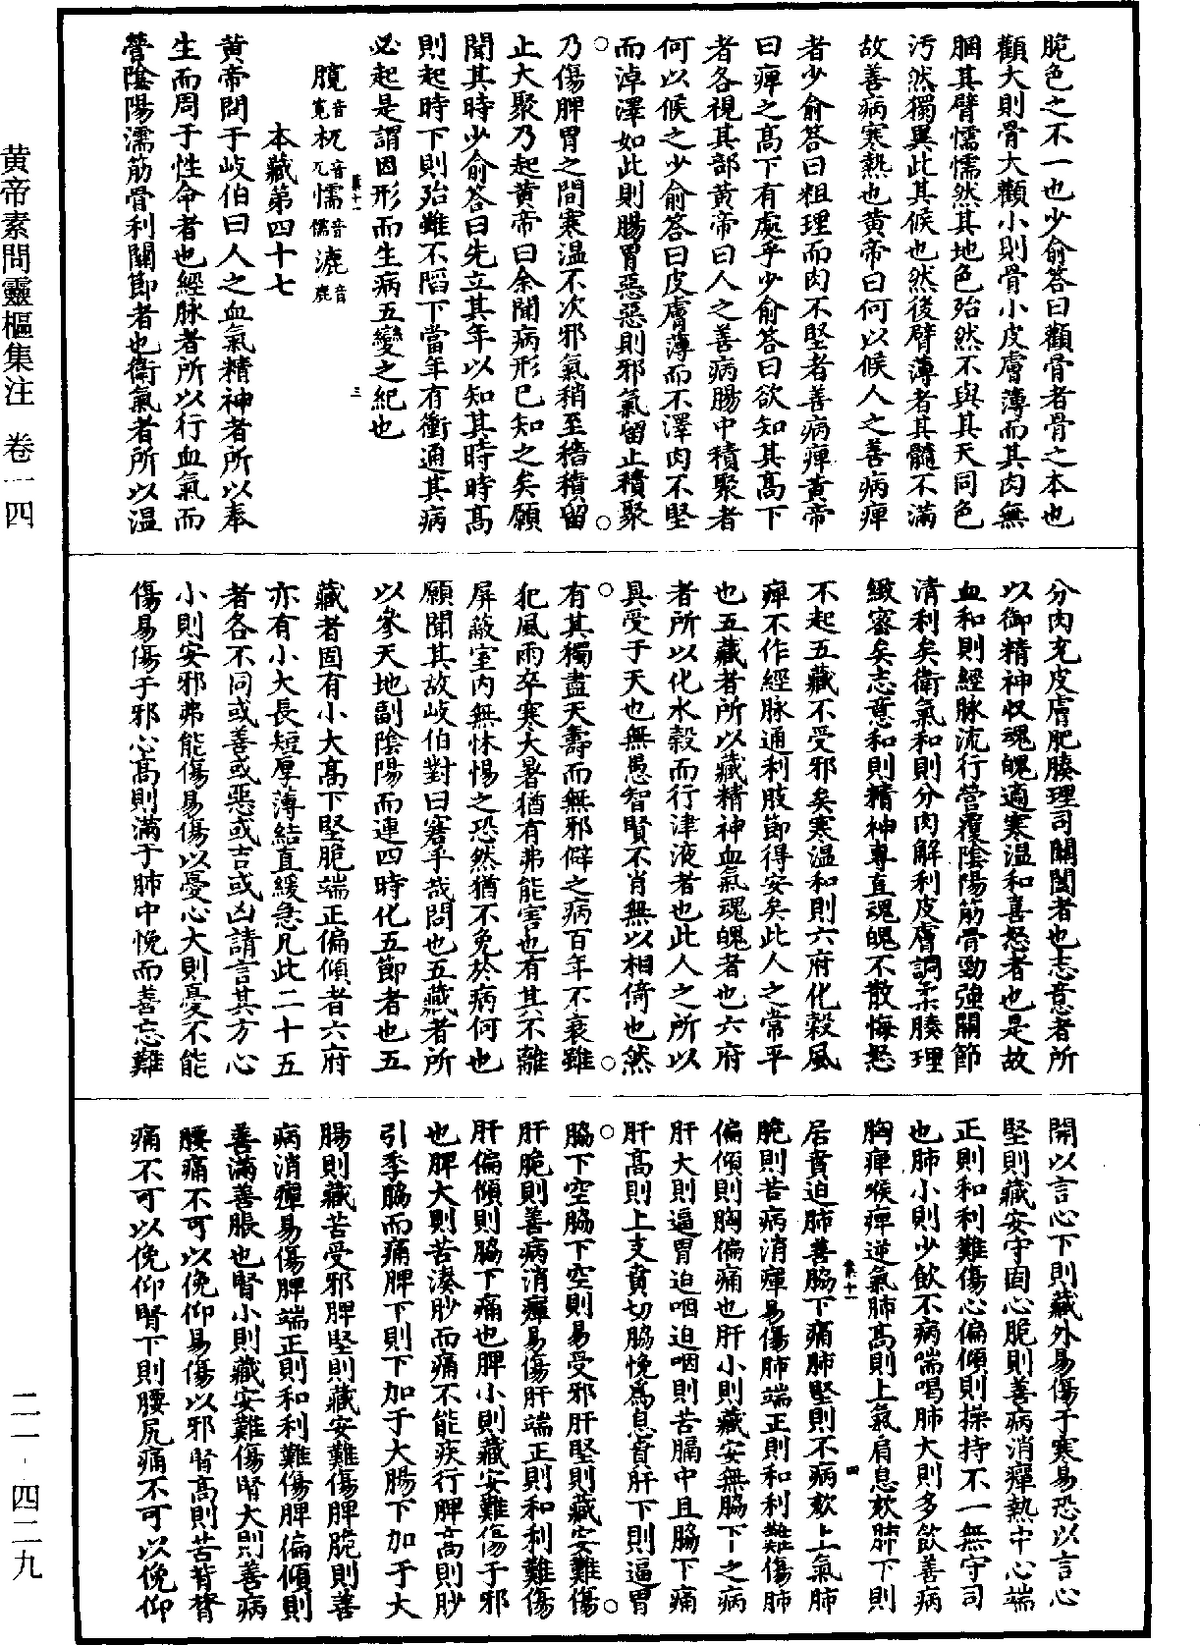 黄帝素問靈樞集注　卷一四
二一·四二九
脆色之不一也少俞答曰顴骨者骨之本也
顴大則骨大顴小則骨小皮膚薄而其肉無
䐃其臂懦懦然其地色殆然不與其天同色
污然獨異此其候也然後臂薄者其髓不滿
故善病寒熱也黄帝曰何以候人之善病痺
者少俞答曰粗理而肉不堅者善病痺黄帝
曰痺之高下有處乎少俞答曰欲知其高下
者各視其部黄帝曰人之善病腸中積聚者
何以候之少俞答曰皮膚薄而不澤肉不堅
而淖澤如此則腸胃惡惡則邪氣留止積聚
乃傷脾胃之間寒温不次邪氣稍至稸積留
止大聚乃起黄帝曰余聞病形已知之矣願
聞其時少俞答曰先立其年以知其時時高
則起時下則殆雖不陷下當年有衝通其病
必起是謂因形而生病五變之紀也
集十一　三
臗音寬杌音兀懦音儒漉音鹿
本藏第四十七
黄帝問于岐伯曰人之血氣精神者所以奉
生而周于性命者也經脉者所以行血氣而
營陰陽濡筋骨利關節者也衛氣者所以温
分肉充皮膚肥腠理司關闔者也志意者所
以御精神收魂魄適寒温和喜怒者也是故
血和則經脉流行營覆陰陽筋骨勁強關節
清利矣衛氣和則分肉解利皮膚調柔腠理
緻密矣志意和則精神專直魂魄不散悔怒
不起五藏不受邪矣寒温和則六府化穀風
痺不作經脉通利肢節得安矣此人之常平
也五藏者所以藏精神血氣魂魄者也六府
者所以化水穀而行津液者也此人之所以
具受于天也無愚智賢不肖無以相倚也然
有其獨盡天壽而無邪僻之病百年不衰雖
犯風雨卒寒大暑猶有弗能害也有其不離
屏蔽室内無怵惕之恐然猶不免於病何也
願聞其故岐伯對曰窘乎哉問也五藏者所
以參天地副陰陽而連四時化五節者也五
藏者固有小大高下堅脆端正偏傾者六府
亦有小大長短厚薄結直緩急凡此二十五
者各不同或善或惡或吉或凶請言其方心
小則安邪弗能傷易傷以憂心大則憂不能
傷易傷于邪心高則滿于肺中悗而善忘難
開以言心下則藏外易傷于寒易恐以言心
堅則藏安守固心脆則善病消癉熱中心端
正則和利難傷心偏傾則操持不一無守司
也肺小則少飲不病喘喝肺大則多飲善病
胸痺喉痺逆氣肺高則上氣肩息欬肺下則
集十一　四
居賁迫肺善脇下痛肺堅則不病欬上氣肺
脆則苦病消癉易傷肺端正則和利難傷肺
偏傾則胸偏痛也肝小則藏安無脇下之病
肝大則逼胃迫咽迫咽則苦膈中且脇下痛
肝高則上支賁切脇悗爲息賁肝下則逼胃
脇下空脇下空則易受邪肝堅則藏安難傷
肝脆則善病消癉易傷肝端正則和利難傷
肝偏傾則脇下痛也脾小則藏安難傷于邪
也脾大則苦湊䏚而痛不能疾行脾高則䏚
引季脇而痛脾下則下加于大腸下加于大
腸則藏苦受邪脾堅則藏安難傷脾脆則善
病消癉易傷脾端正則和利難傷脾偏傾則
善滿善脹也腎小則藏安難傷腎大則善病
腰痛不可以俛仰易傷以邪腎高則苦背膂
痛不可以俛仰腎下則腰尻痛不可以俛仰